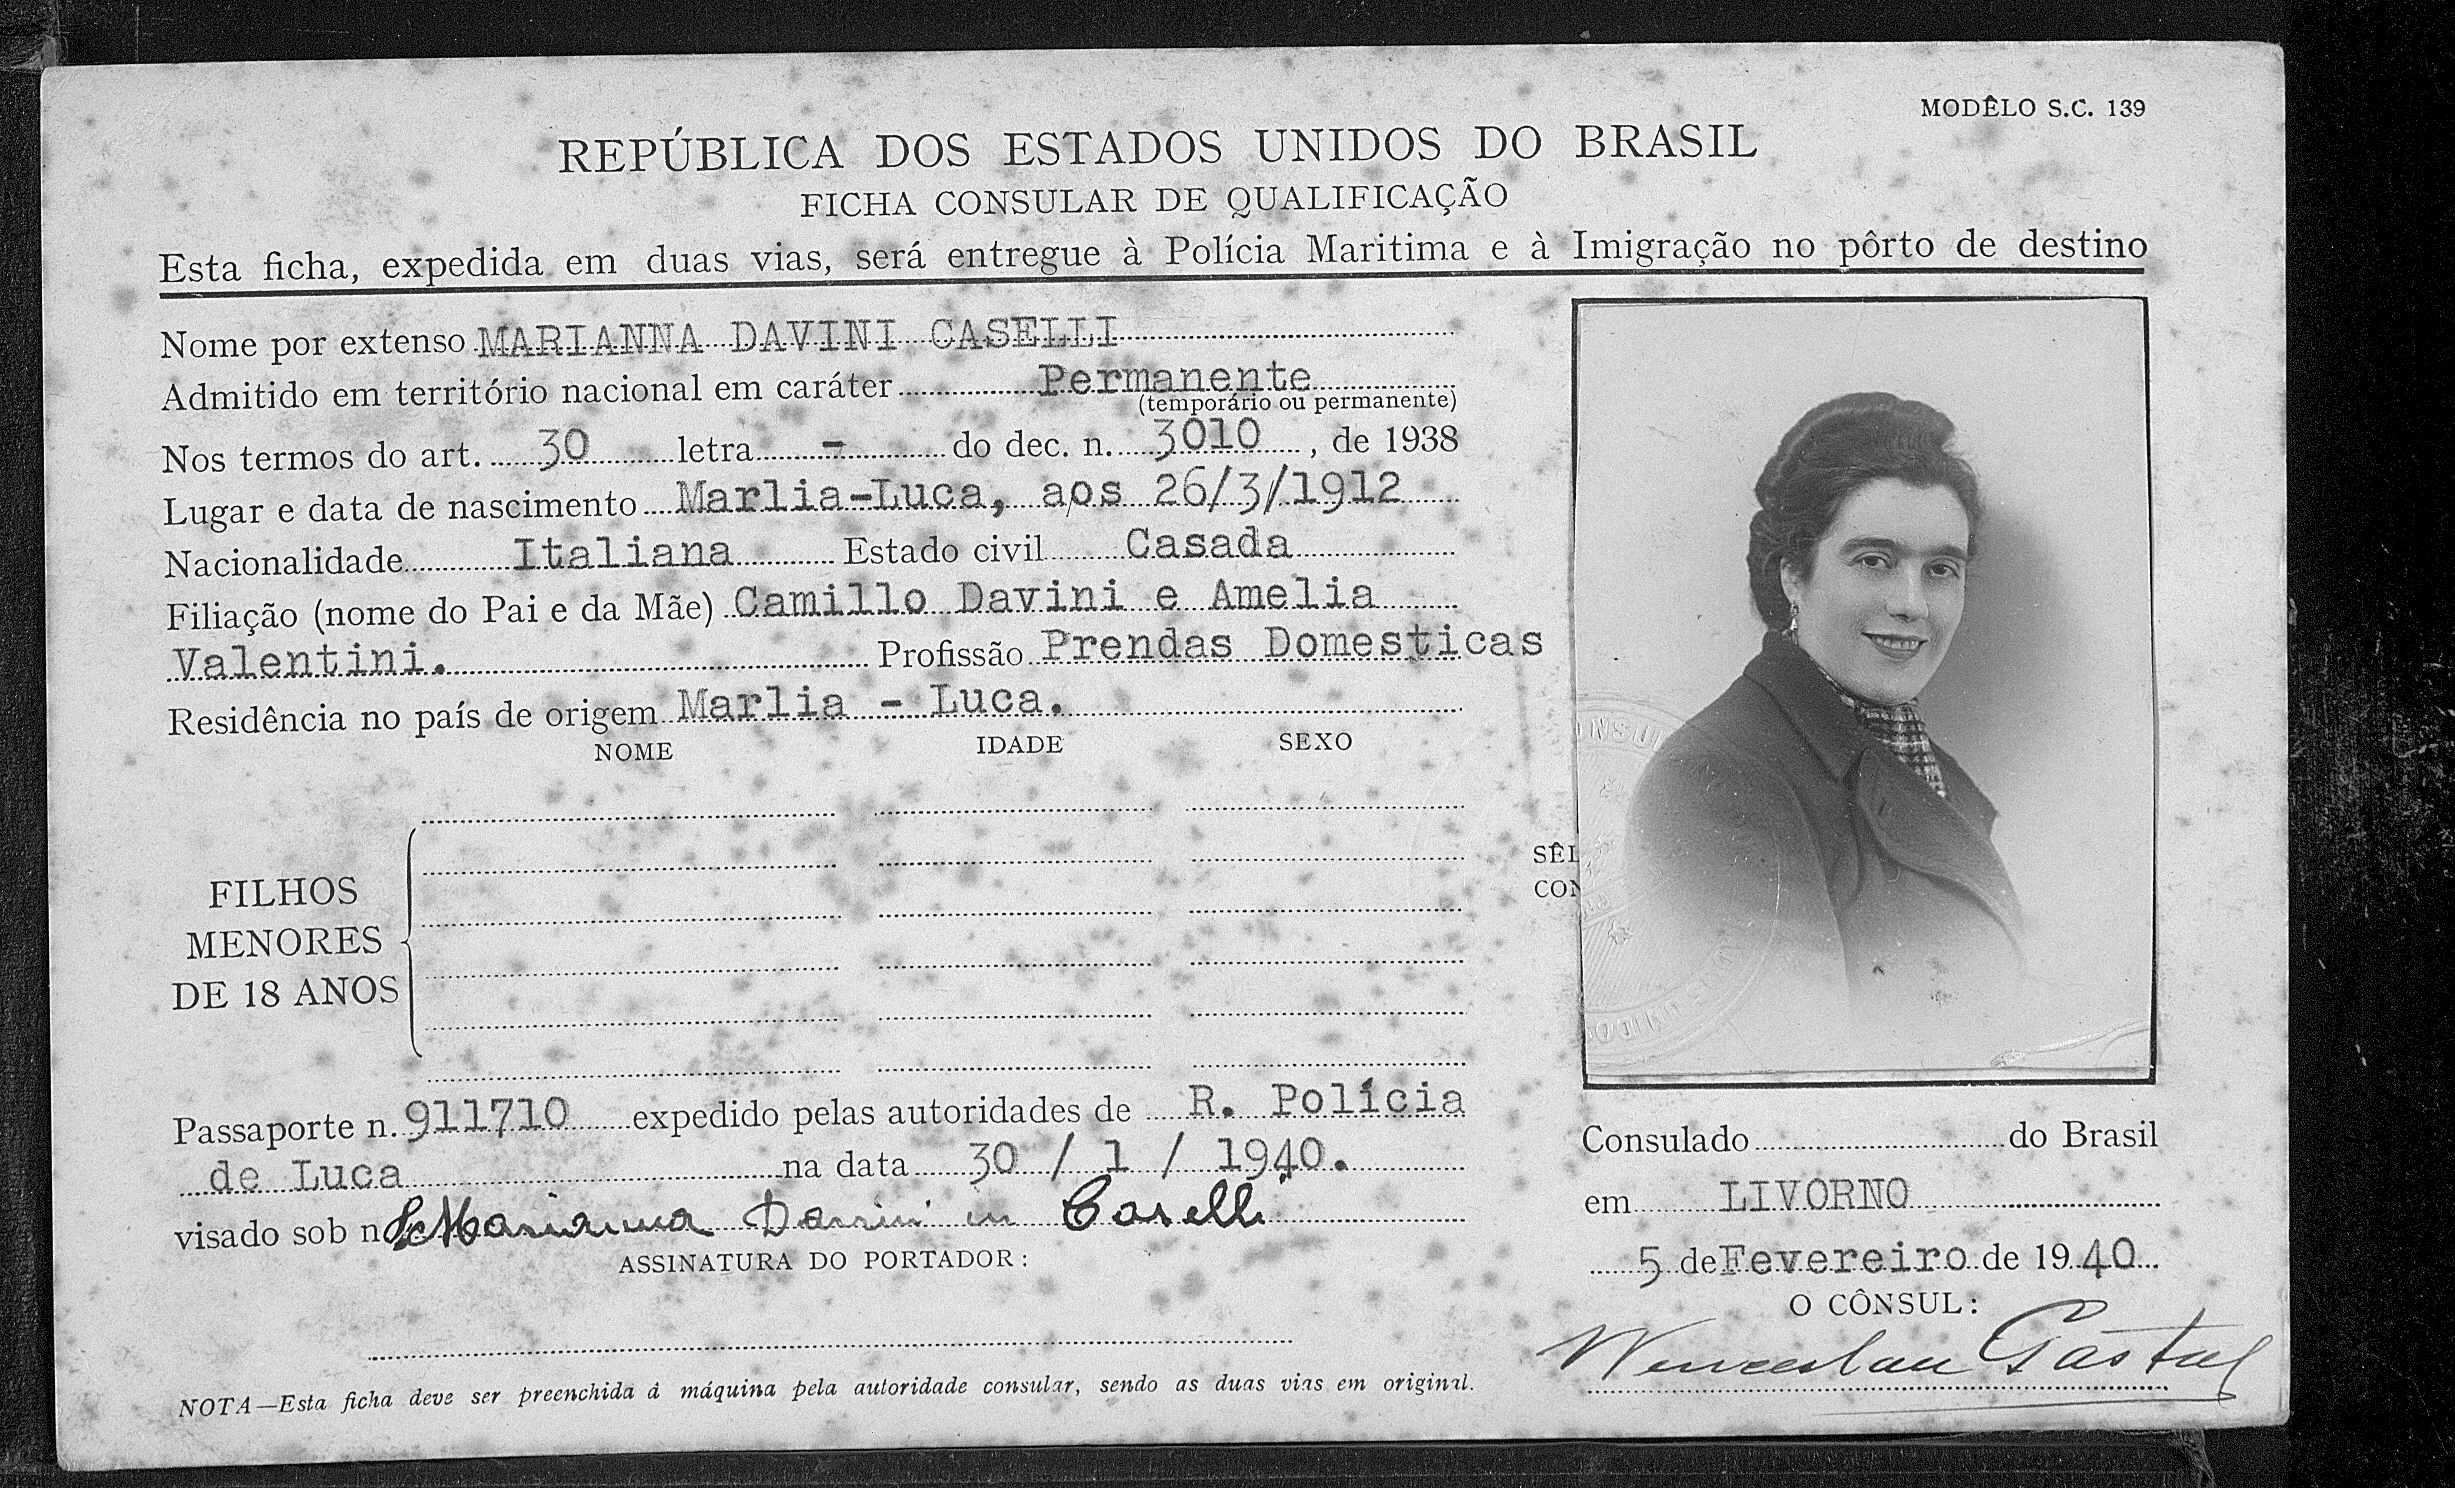 MODÊLO S.C. 139
REPÚBLICA DOS ESTADOS UNIDOS DO BRASIL
FICHA CONSULAR DE QUALIFICAÇÃO
Esta ficha, expedida em duas vias, será entregue à Polícia Maritima e à Imigração no pôrto de destino
Nome por extenso MARIANNA DAVINI CASELLI
Admitido em território nacional em caráter Permanente
(temporário ou permanente)
Nos termos do art. 30 letra - do dec. n. 3010, de 1938
Lugar e data de nascimento Marlia-Luca, aos 26/3/1912
Nacionalidade Italiana Estado civil Casada
Filiação (nome do Pai e da Mãe) Camillo Davini e Amelia
Valentini. Profissão Prendas Domesticas
Residência no país de origem Marlia - Luca.
NOME IDADE SEXO
FILHOS
MENORES
DE 18 ANOS
SÊL
CON
Passaporte n. 911710 expedido pelas autoridades de R. Polícia
de Luca na data 30 / 1 / 1940.
visado sob n Marianna Davini in Caselli
ASSINATURA DO PORTADOR:
NOTA—Esta ficha deve ser preenchida á máquina pela autoridade consular, sendo as duas vias em original.
Consulado do Brasil
em LIVORNO
5 de Fevereiro de 1940
O CÔNSUL: